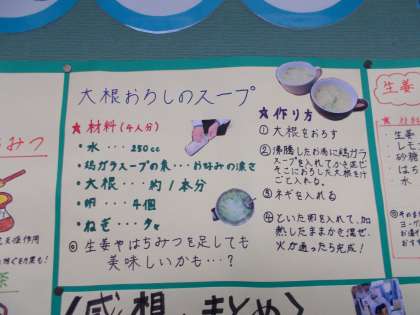 大根おろしのスープ
★材料(4人分)
・水...250cc
・鶏ガラスープの素...お好みの濃さ
・大根...約1本分
・卵...4個
・ねぎ...少々
◎生姜やはちみつを足しても
美味しいかも...?
★作り方
①大根をおろす
②沸騰したお湯に鶏ガラ
スープを入れてかき混ぜ
そこにおろした大根を汁
ごと入れる。
③ネギを入れる
④といた卵を入れて、加
熱したままかき混ぜ、
火が通ったら完成!
みつ
作用
茶
生姜
★材料
・生姜
・レモン
・砂糖
・はち
・水
<感想・まとめ>